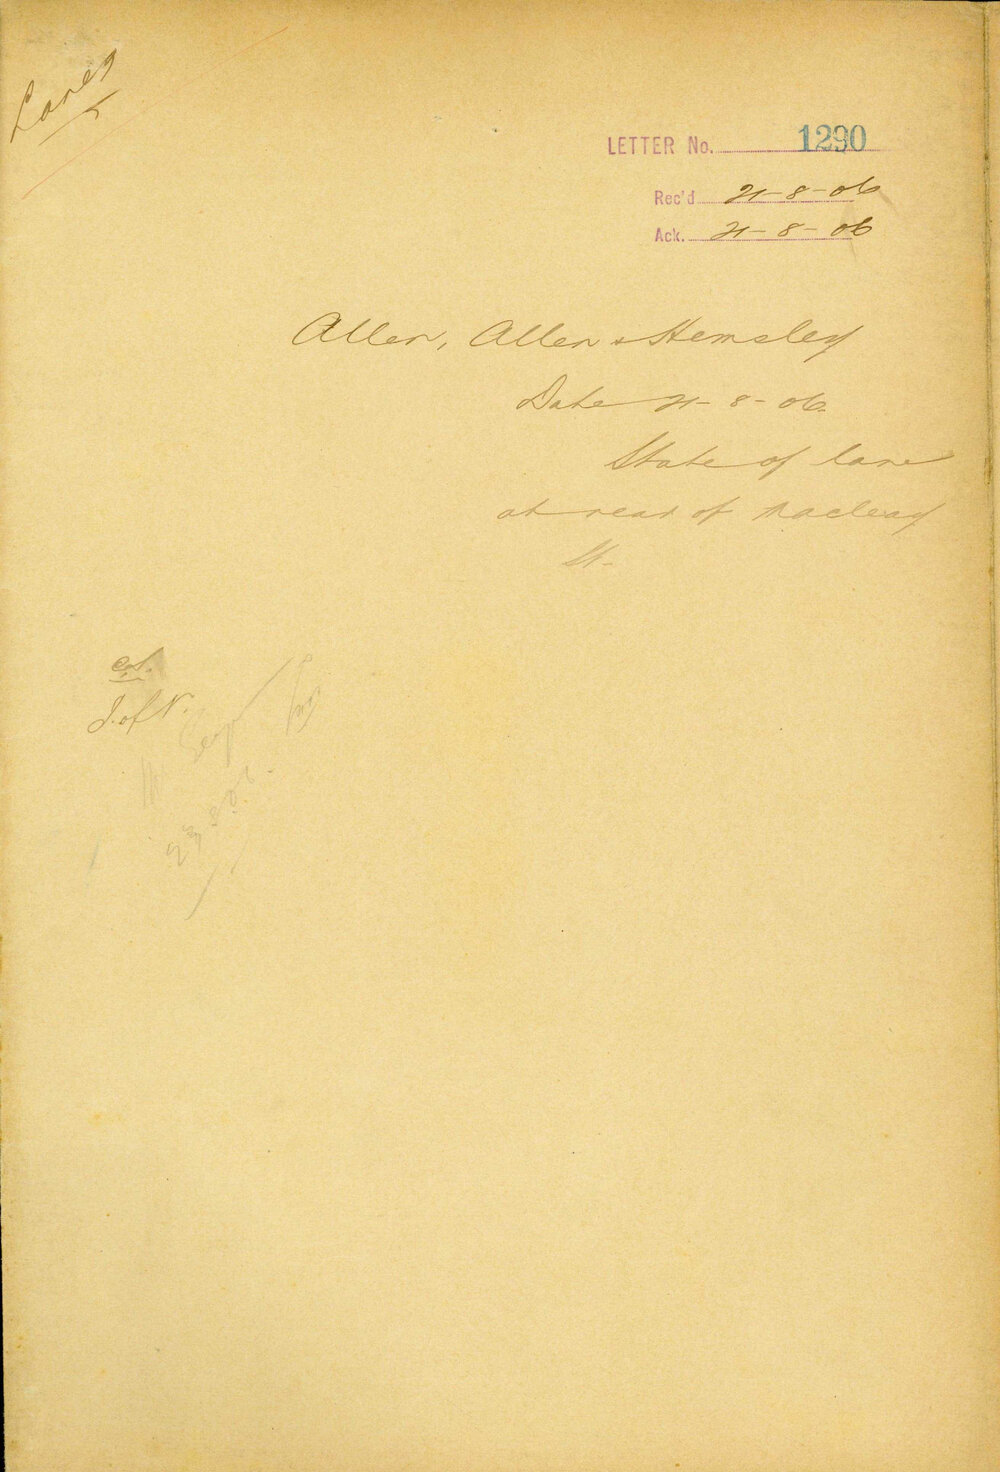 Lanes
LETTER No. 1290
Rec'd 21-8-06
Ack. 21-8-06
Allen, Allen & Hemsley
Date 21-8-06.
State of lane
at rear of Macleay
St.
I. of N.
23.8.06.